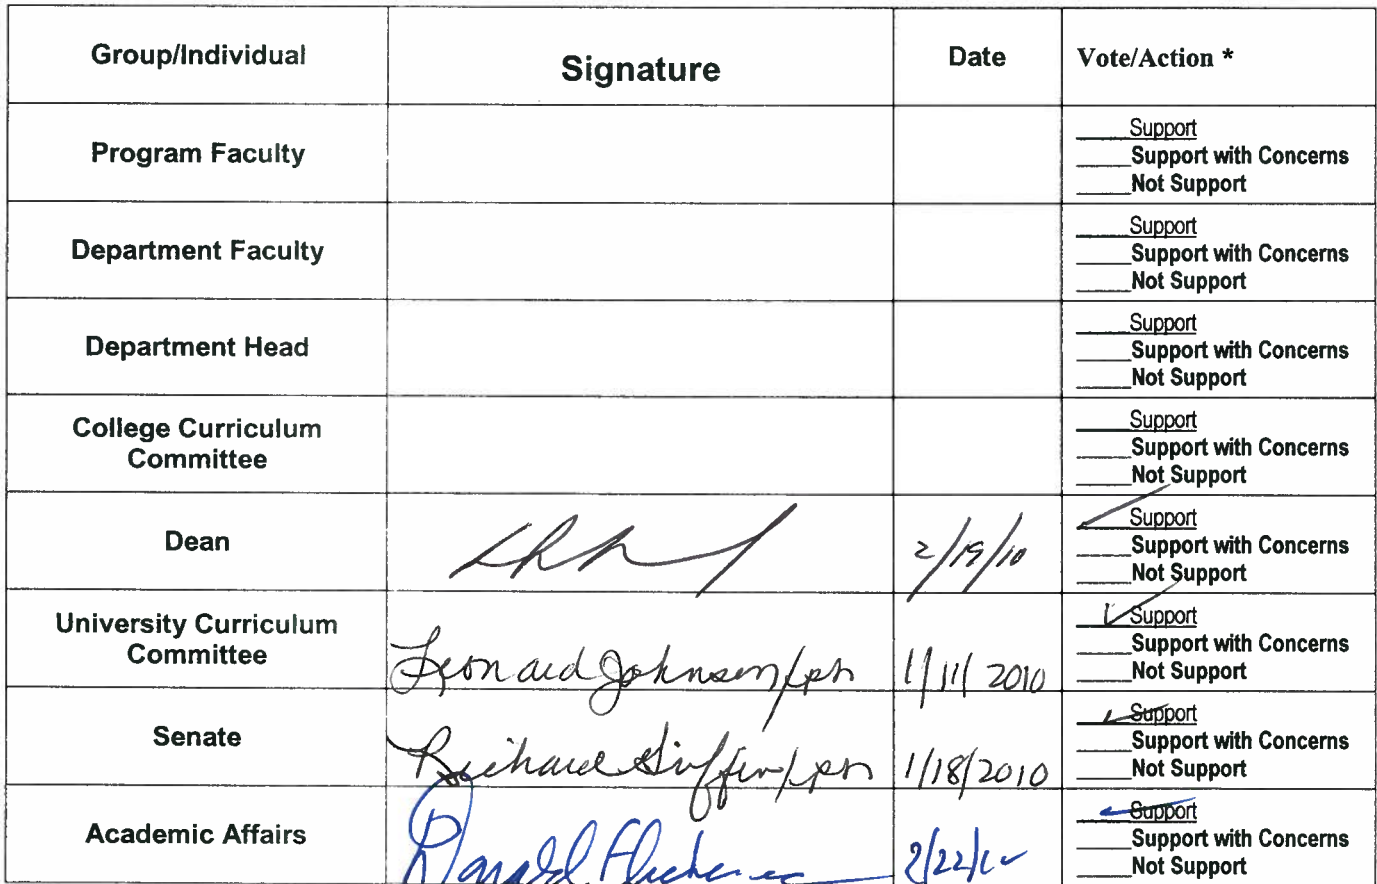 Group/Individual Signature Date Vote/Action *
Program Faculty
____Support
____Support with Concerns
____Not Support
Department Faculty
____Support
____Support with Concerns
____Not Support
Department Head
____Support
____Support with Concerns
____Not Support
College Curriculum
Committee
____Support
____Support with Concerns
____Not Support
Dean
2/19/10
____Support
____Support with Concerns
____Not Support
University Curriculum
Committee
Leonard Johnson/
1/11/2010
____Support
____Support with Concerns
____Not Support
Senate
Richard Griffin/
1/18/2010
____Support
____Support with Concerns
____Not Support
Academic Affairs
Donald
2/22/10
____Support
____Support with Concerns
____Not Support